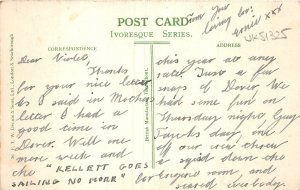 POST CARD
IVORESQUE SERIES.
CORRESPONDENCE
ADDRESS
British Manufacture Throughout.
from your
loving bro:
Ernie xxx
UK51325
Dear Violet,
Thanks
for your nice letter
As I said in Mothers
letter I had a
good time in
Dover. Well one
more week and
the "KELLETT GOES
SAILING NO MORE" for
this year at any
rate. Just a few
snaps of Dover. We
had some fun on
Thursday night, Guy
Fawkes day, one
off our crew threw
a squib down the
Engine room and
scared everybody